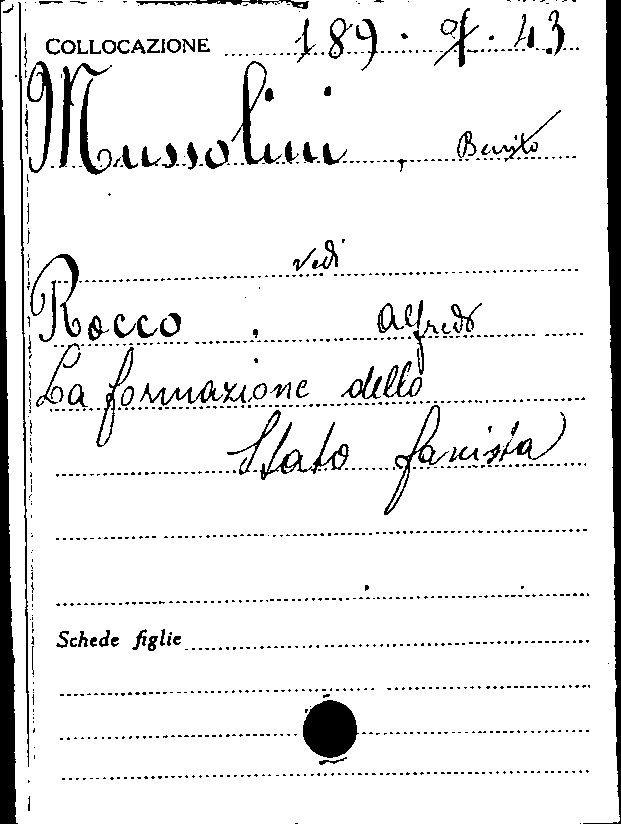 COLLOCAZIONE 189. 9. 43
Mussolini, Benito
vedi
Rocco, Alfredo
La formazione dello
Stato fascista
Schede figlie